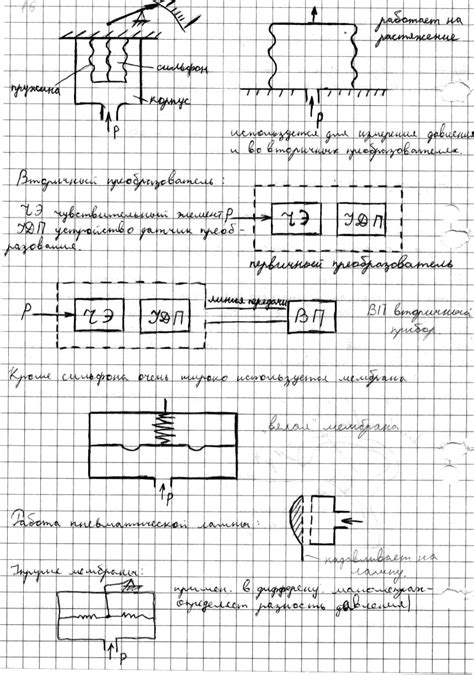 работает на
растяжение
пружина
сильфон
корпус
P
P
используется для измерения давления
и во вторичных преобразователях
Вторичный преобразователь:
ЧЭ чувствительный элемент
УДП устройство датчик преоб-
разование.
P
ЧЭ
УДП
первичный преобразователь
P
ЧЭ
УДП
линия передачи
ВП
ВП вторичный
прибор.
Кроме сильфона очень широко используется мембрана
мембрана
P
Работа пневматической лампы:
надавливает на
лампу
мембраны:
примен. в
определяет разность давления)
P